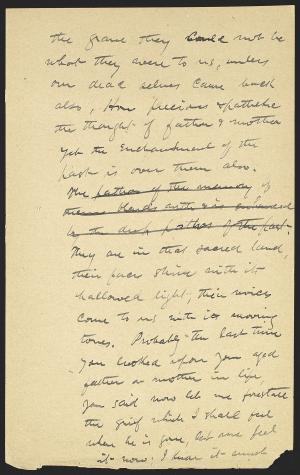 the grave they could not be
what they were to us, unless
our dead selves came back
also, How precious & pathetic
the thought of father & mother
yet the enchantment of the
past is over them also.
The pathos of the memory of
them blends with & is enhanced
by the deep pathos of the past.
They are in that sacred land,
their faces shine with its
hallowed light, their voices
come to us with its moving
tones. Probably the last time
you looked upon your aged
father or mother in life,
you said now let me forestall
the grief which I shall feel
when he is gone, let me feel
it now. I hear it much